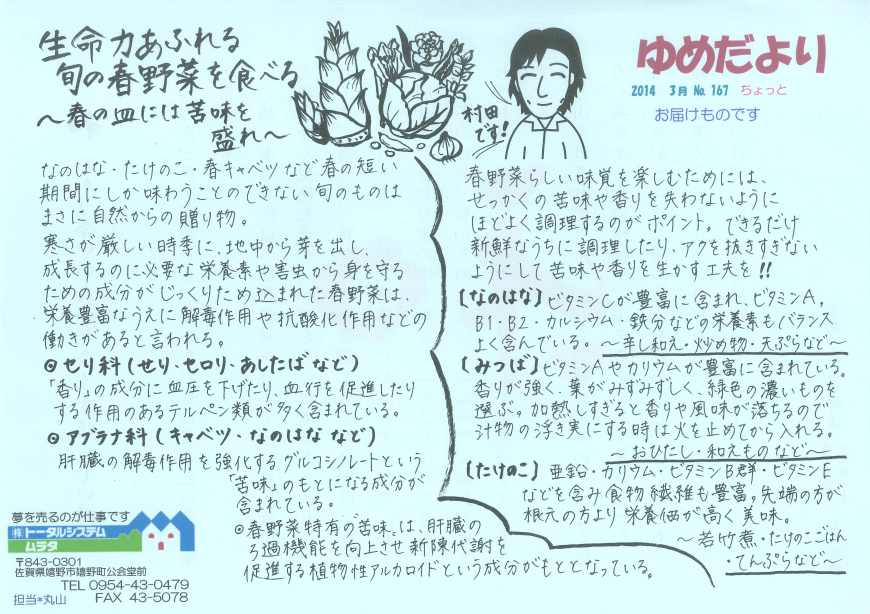 生命力あふれる
旬の春野菜を食べる
～春の皿には苦味を
盛れ～
村田
です!
ゆめだより
2014 3月 No.167 ちょっと
お届けものです
なのはな・たけのこ・春キャベツなど春の短い
期間にしか味わうことのできない旬のものは
まさに自然からの贈り物。
寒さが厳しい時季に、地中から芽を出し、
成長するのに必要な栄養素や害虫から身を守る
ための成分がじっくりため込まれた春野菜は、
栄養豊富なうえに解毒作用や抗酸化作用などの
働きがあると言われる。
◎セリ科(せり・セロリ・あしたばなど)
「香り」の成分に血圧を下げたり、血行を促進したり
する作用のあるテルペン類が多く含まれている。
◎アブラナ科(キャベツ・なのはななど)
肝臓の解毒作用を強化するグルコシノレートという
「苦味」のもとになる成分が
含まれている。
◎春野菜特有の“苦味”は、肝臓の
ろ過機能を向上させ新陳代謝を
促進する植物性アルカロイドという成分がもととなっている。
春野菜らしい味覚を楽しむためには、
せっかくの苦味や香りを失わないように
ほどよく調理するのがポイント。できるだけ
新鮮なうちに調理したり、アクを抜きすぎない
ようにして苦味や香りを生かす工夫を!!
【なのはな】ビタミンCが豊富に含まれ、ビタミンA,
B1・B2・カルシウム・鉄分などの栄養素もバランス
よく含んでいる。～辛し和え・炒め物・天ぷらなど～
【みつば】ビタミンAやカリウムが豊富に含まれている。
香りが強く、葉がみずみずしく、緑色の濃いものを
選ぶ。加熱しすぎると香りや風味が落ちるので
汁物の浮き実にする時は火を止めてから入れる。
～おひたし・和えものなど～
【たけのこ】亜鉛・カリウム・ビタミンB群・ビタミンE
などを含み食物繊維も豊富。先端の方が
根元の方より栄養価が高く美味。
～若竹煮・たけのこごはん
・てんぷらなど～
夢を売るのが仕事です
㈱トータルシステム
ムラタ
〒843-0301
佐賀県嬉野市嬉野町公会堂前
TEL 0954-43-0479
担当*丸山 FAX 43-5078